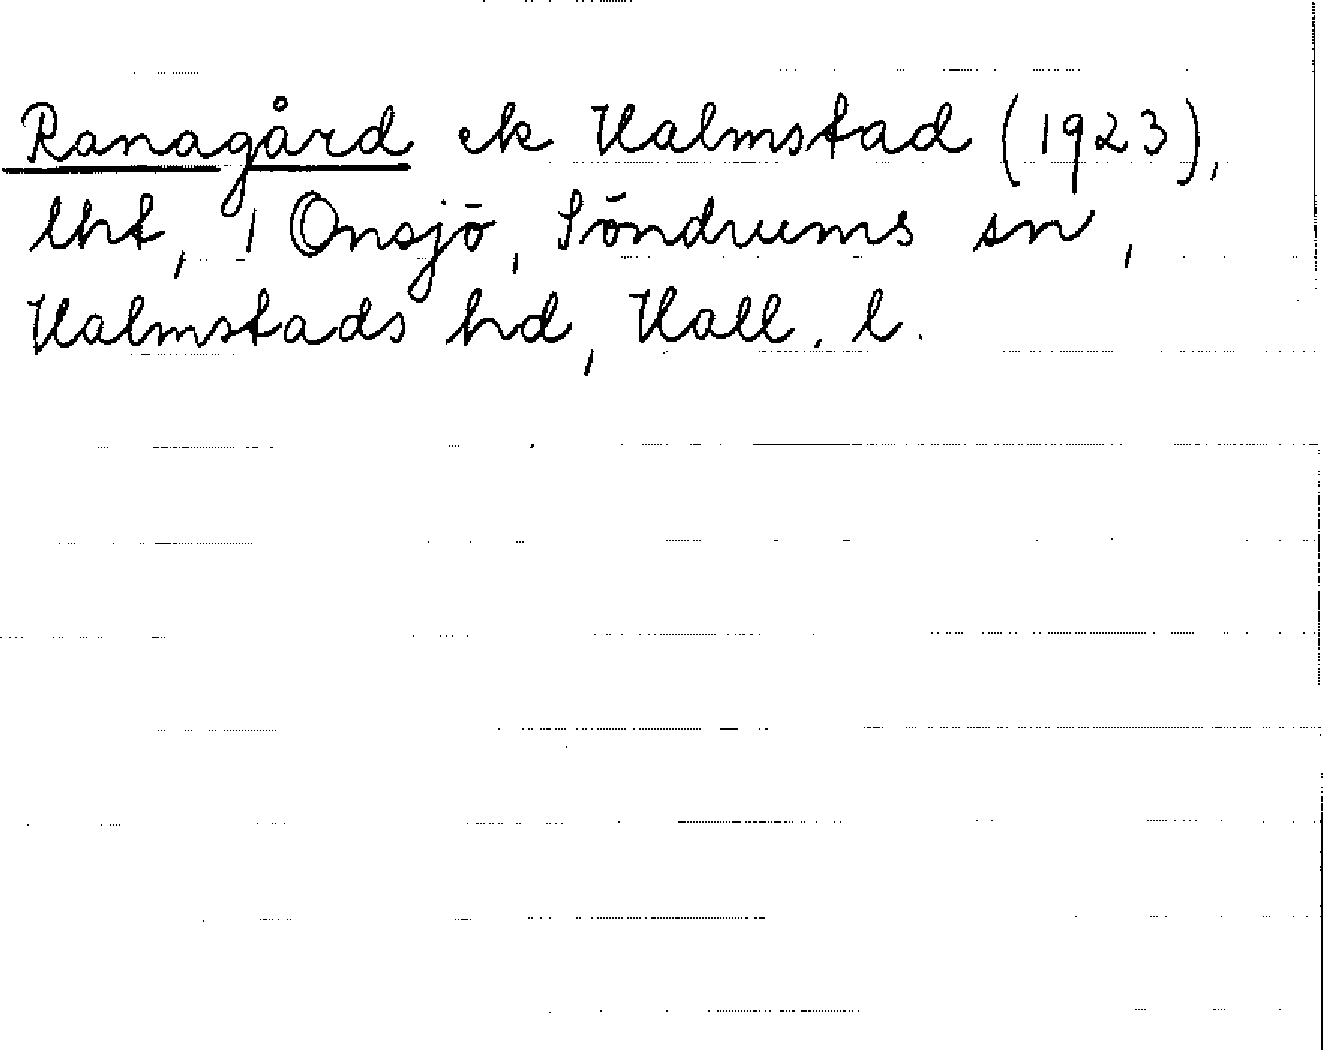 Ranagård ek Halmstad (1923),
lht, 1 Onsjö, Söndrums sn,
Halmstads hd, Hall. l.